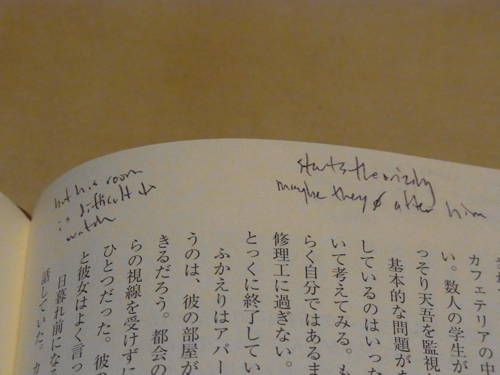 but his room
is difficult to
watch
starts theorizing
maybe they after him
カフェテリアの中
い。数人の学生が
っそり天吾を監視
基本的な問題が
しているのはいった
いて考えてみる。も
らく自分ではあるま
修理工に過ぎない。
とっくに終了してい
ふかえりはアパー
うのは、彼の部屋が
きるだろう。都会の
らの視線を受けずに
ひとつだった。彼の
と彼女はよく言っ
日暮れ前にな
話していた。カ